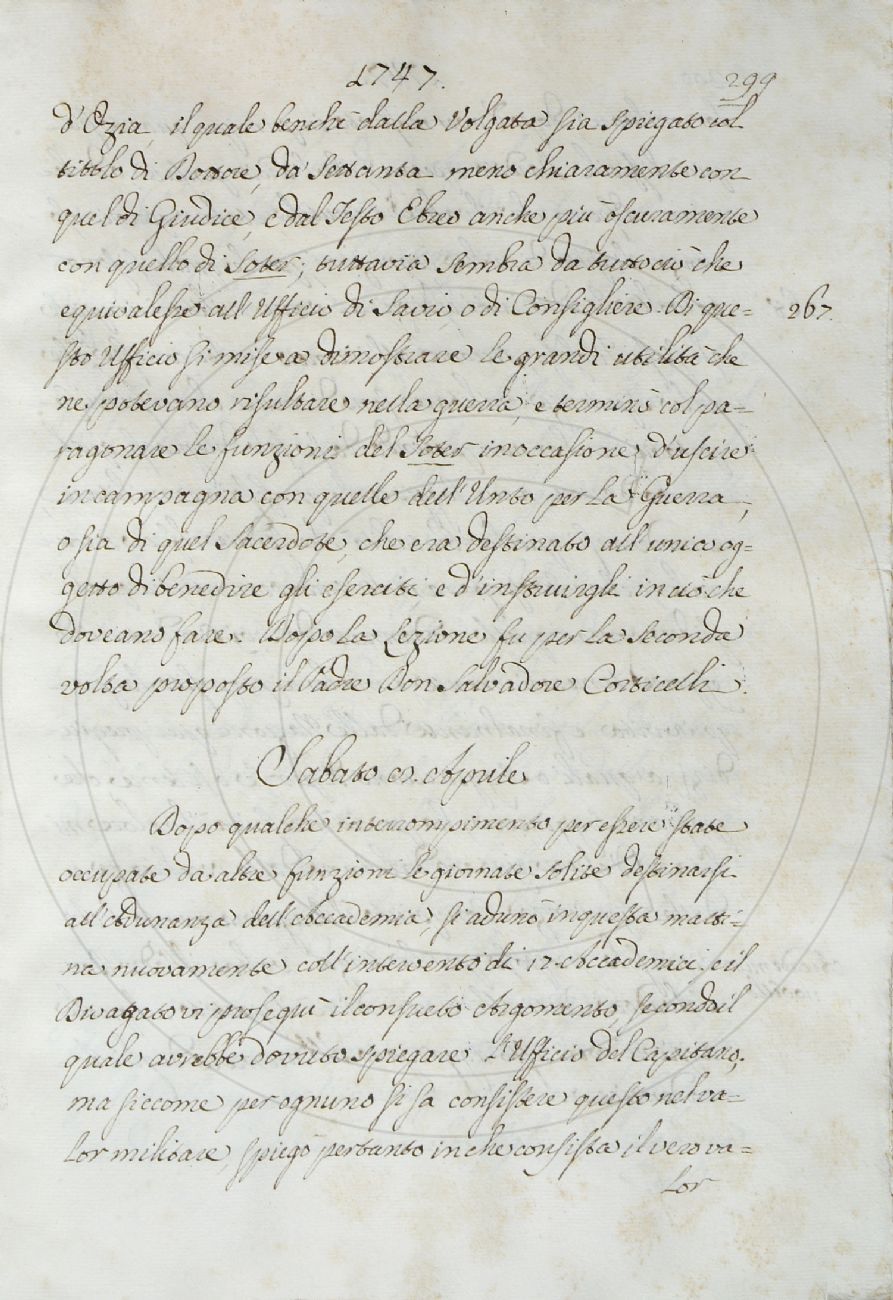 1747.
299
d'Ozia, il quale benchè dalla Volgata sia spiegato col
titolo di Dottore, da Settanta meno chiaramente con
quel di Giudice, e dal Testo Ebreo anche più oscuramente
con quello di Soter; tuttavia sembra da tuttociò, che
equivalesse all'Ufficio di Savio, o di Consigliere. Di que=
267.
sto Ufficio si mise a dimostrare le grandi utilità che
ne potevano risultare nella guerra, e terminò col pa=
ragonare le funzioni del Soter in occasione d'uscire
in campagna con quelle dell'Unto per la Guerra,
o sia di quel Sacerdote, che era destinato all'unico og=
getto di benedire gli eserciti, e d'instruirgli in ciò che
doveano fare. Dopo la Lezione fu per la seconda
volta proposto il Padre Don Salvadore Corticelli.
Sabato Aprile
Dopo qualche interrompimento per essere state
occupate da altre funzioni le giornate solite destinarsi
all'Adunanza dell'Accademia, si adunò in questa matti=
na nuovamente coll'intervento di 12. Accademici, e il
Divagato vi proseguì il consueto Argomento, secondo il
quale avrebbe dovuto spiegare L'Ufficio del Capitano,
ma siccome per ognuno si sa consistere questo nel va=
lor militare, spiegò pertanto in che consista il vero va=
lor